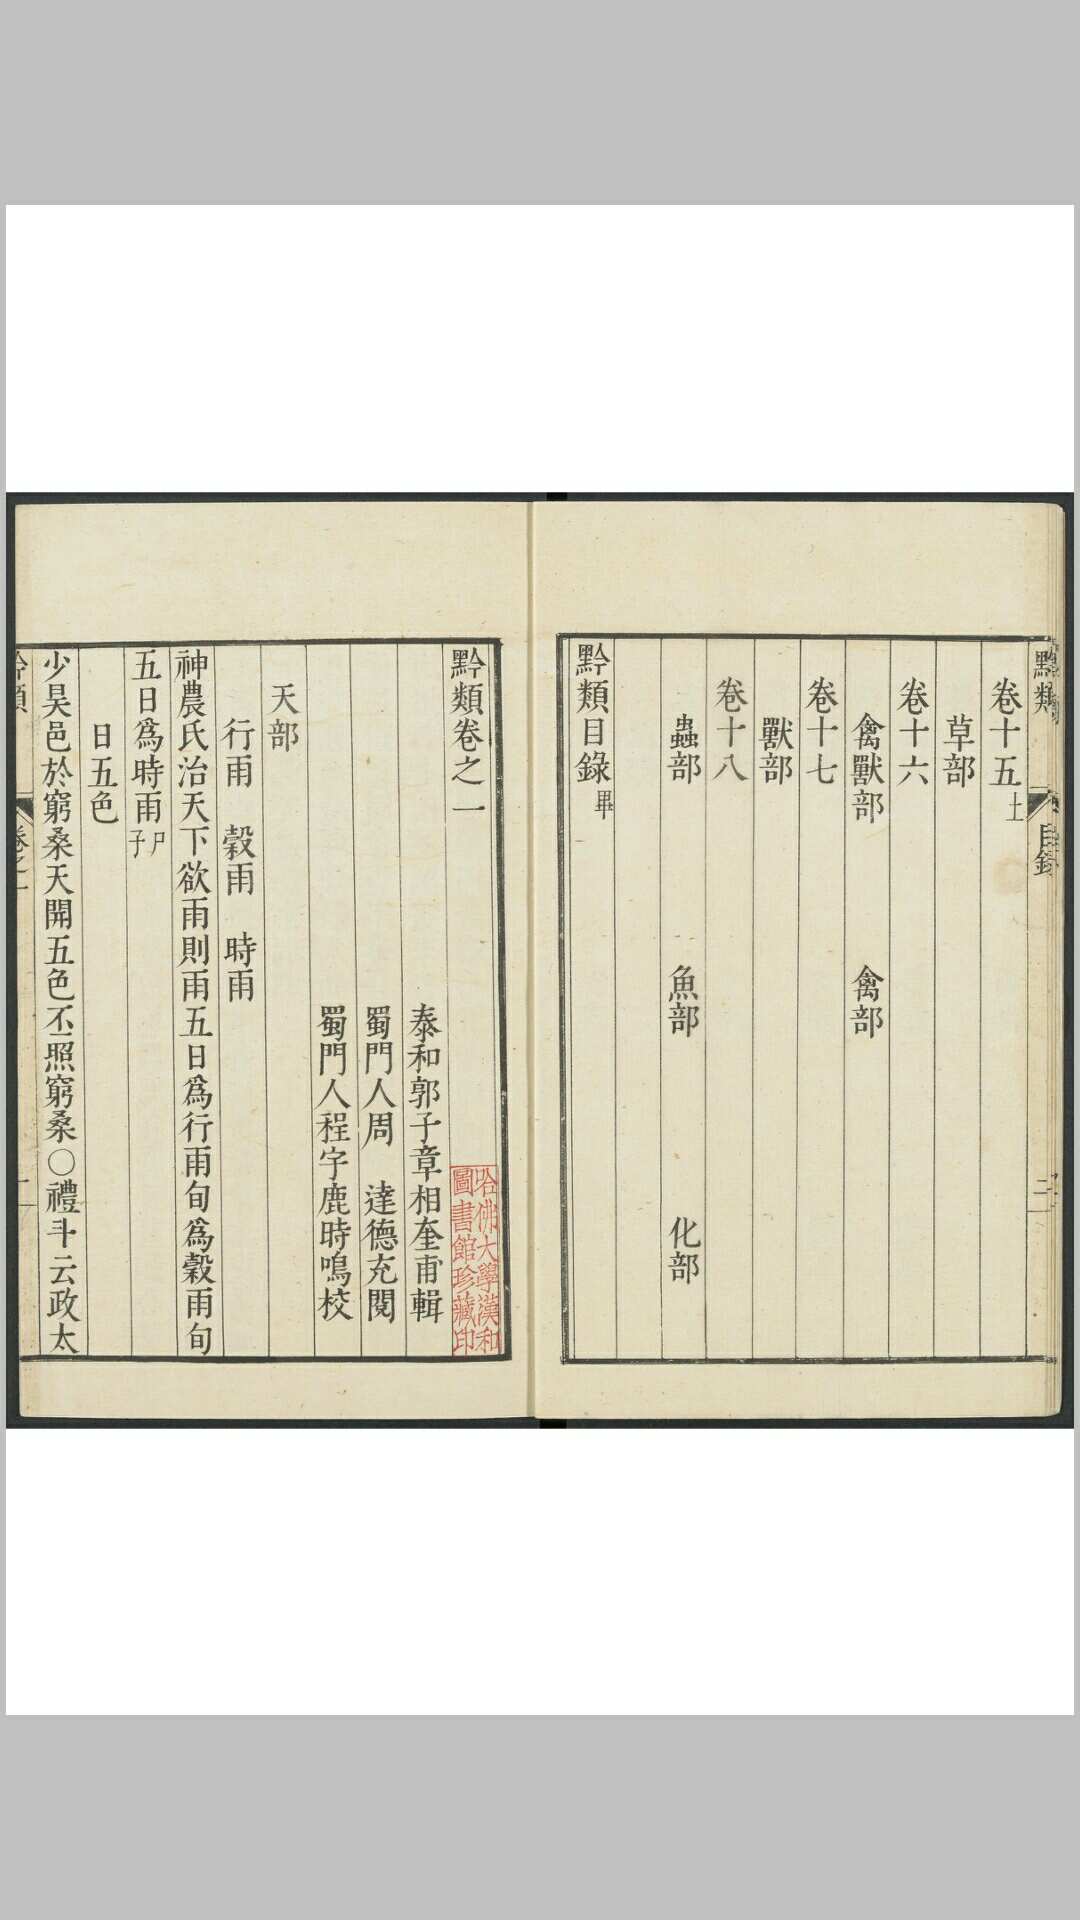 黔類
目錄
二
卷十五土
草部
卷十六
禽獸部 禽部
卷十七
獸部
卷十八
蟲部 魚部 化部
黔類目錄畢
黔類卷之一
哈佛大學漢和
圖書館珍藏印
泰和郭子章相奎甫輯
蜀門人周 達德充閱
蜀門人程宇鹿時鳴校
天部
行雨 穀雨 時雨
神農氏治天下欲雨則雨五日爲行雨旬爲穀雨旬
五日爲時雨尸子
日五色
少昊邑於窮桑天開五色丕照窮桑〇禮斗云政太
卷之一